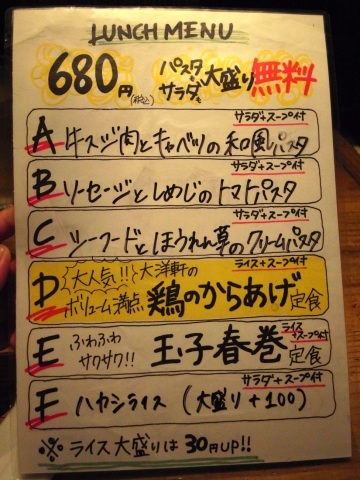 LUNCH MENU
680円(税込) パスタ、サラダも大盛り無料
サラダ+スープ付
A 牛スジ肉とキャベツの和風パスタ
サラダ+スープ付
B ソーセージとしめじのトマトパスタ
サラダ+スープ付
C シーフードとほうれん草のクリームパスタ
ライス+スープ付
D 大人気!! 大洋軒の
ボリューム満点 鶏のからあげ定食
ライス+スープ付
E ふわふわ サクサク!! 玉子春巻定食
サラダ+スープ付
F ハヤシライス (大盛り+100)
※ライス大盛りは30円UP!!